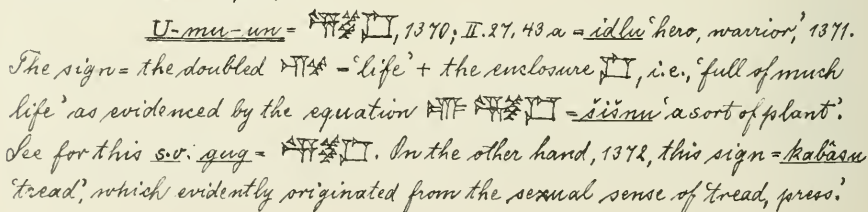 U-mu-un = , 1370; II. 27, 43 a = idlu 'hero, warrior,' 1371.
The sign = the doubled - 'life' + the enclosure , i.e., 'full of much
life' as evidenced by the equation = šišnu 'a sort of plant'.
See for this s.v. gug = . On the other hand, 1372, this sign = kabâsu
'tread', which evidently originated from the sexual sense of 'tread, press.'